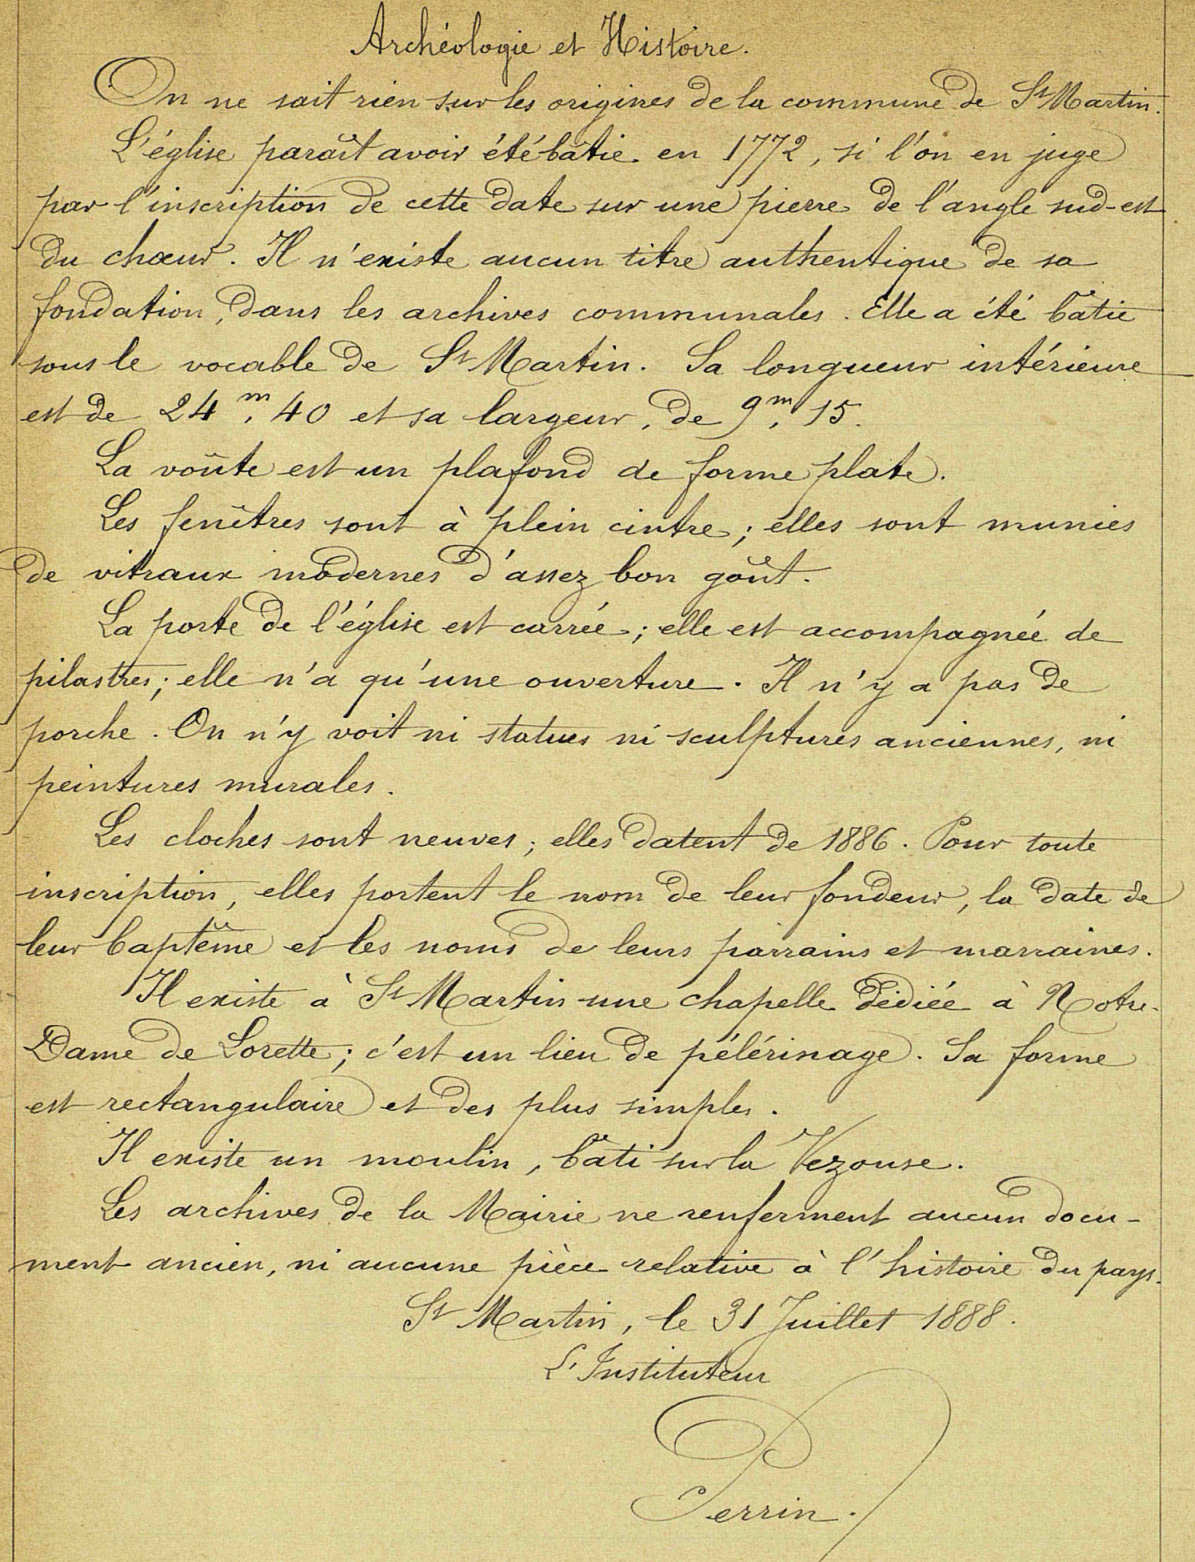 Archéologie et Histoire.
On ne sait rien sur les origines de la commune de St Martin.
L'église paraît avoir été bâtie en 1772, si l'on en juge
par l'inscription de cette date sur une pierre de l'angle sud-est
du chœur. Il n'existe aucun titre authentique de sa
fondation, dans les archives communales. Elle a été bâtie
sous le vocable de St Martin. Sa longueur intérieure
est de 24m,40 et sa largeur, de 9m,15.
La voûte est un plafond de forme plate.
Les fenêtres sont à plein cintre; elles sont munies
de vitraux modernes d'assez bon goût.
La porte de l'église est carrée; elle est accompagnée de
pilastres; elle n'a qu'une ouverture. Il n'y a pas de
porche. On n'y voit ni statues ni sculptures anciennes, ni
peintures murales.
Les cloches sont neuves; elles datent de 1886. Pour toute
inscription, elles portent le nom de leur fondeur, la date de
leur baptême et les noms de leurs parrains et marraines.
Il existe à St Martin une chapelle dédiée à Notre-
Dame de Lorette; c'est un lieu de pélérinage. Sa forme
est rectangulaire et des plus simples.
Il existe un moulin, bâti sur la Vezouse.
Les archives de la Mairie ne renferment aucun docu-
ment ancien, ni aucune pièce relative à l'histoire du pays.
St Martin, le 31 Juillet 1888.
L'Instituteur
Perrin.